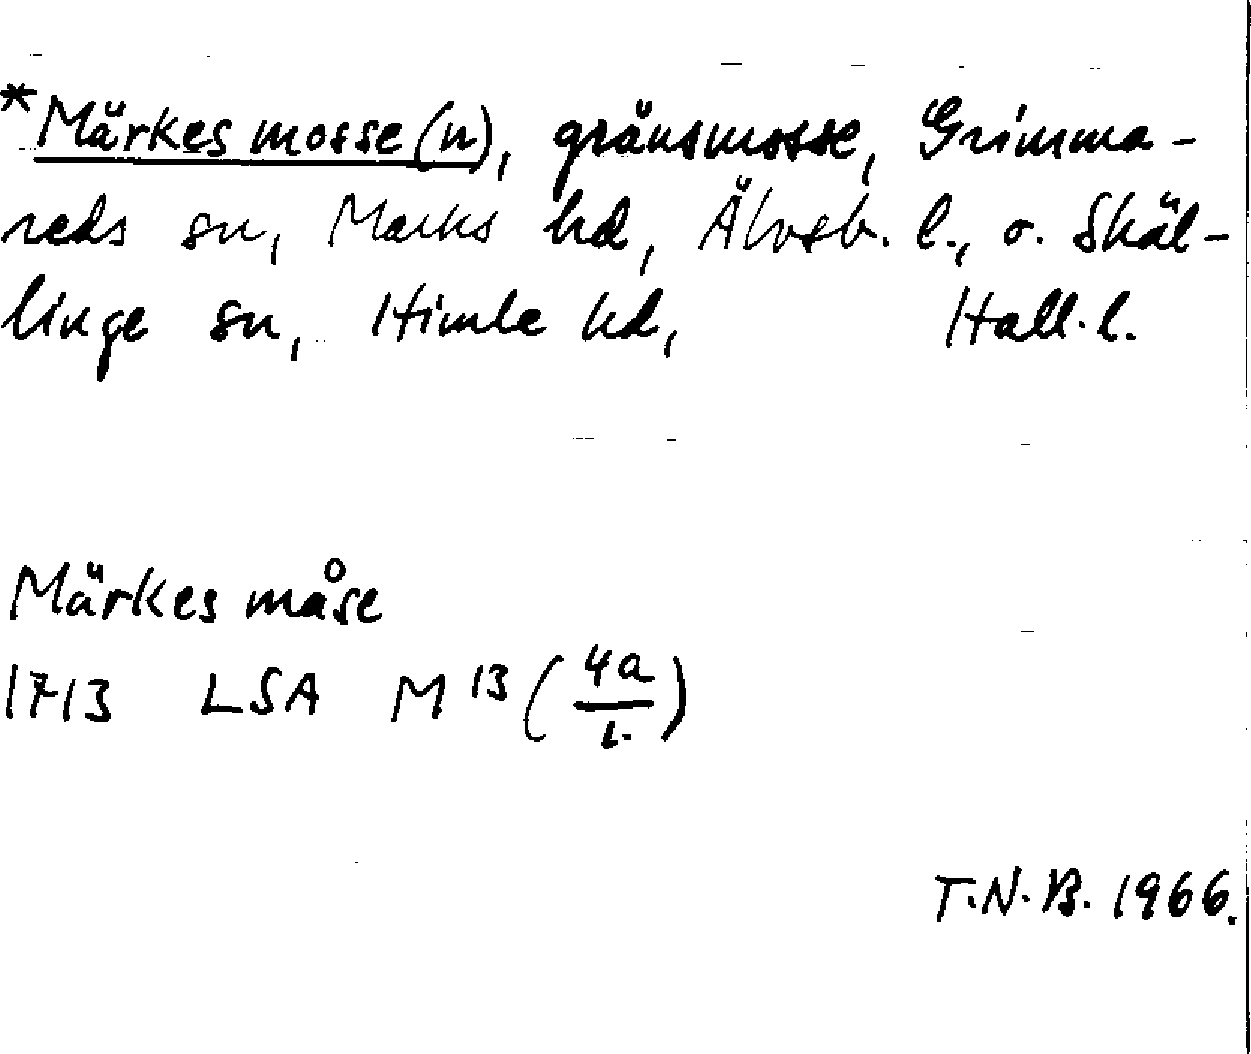 *Märkes mosse(n), gränsmosse, Grimma-
reds sn, Marks hd, Älvsb. l., o. Skäl-
linge sn, Himle hd, Hall. l.
Märkes måse
1713 LSA M 13 (4a/1.)
T.N.B. 1966.